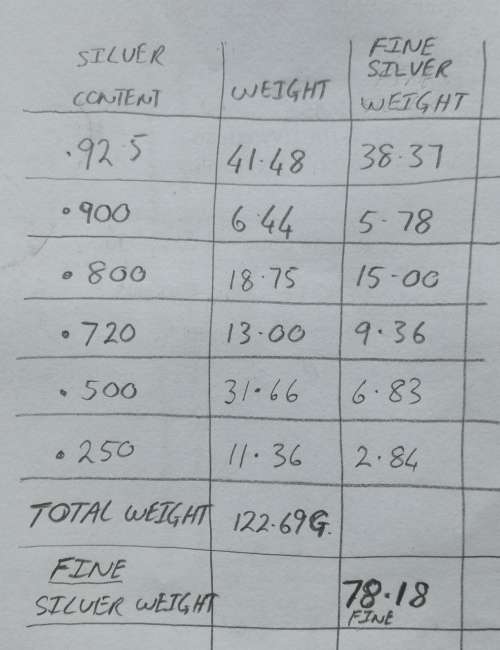 SILVER CONTENT WEIGHT FINE SILVER WEIGHT
.925 41.48 38.37
.900 6.44 5.78
.800 18.75 15.00
.720 13.00 9.36
.500 31.66 6.83
.250 11.36 2.84
TOTAL WEIGHT 122.69G.
FINE
SILVER WEIGHT 78.18
FINE